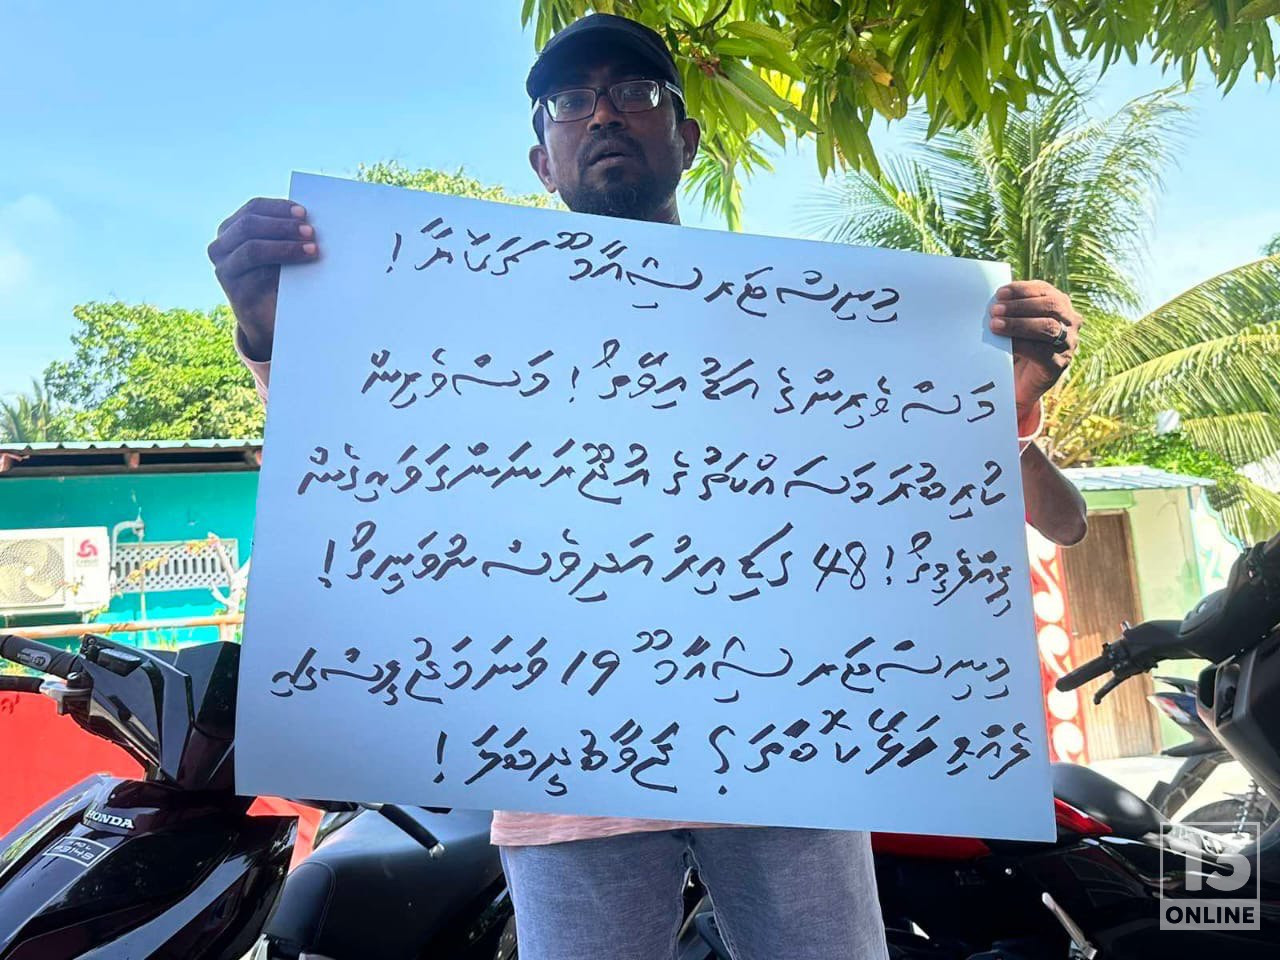 މިނިސްޓަރ ޝިއާމް ގަޔަކާ!
މަސްވެރިންގެ އަޑު އިވޭތޯ! މަސްވެރިން
ކުރިބުރަ މަސައްކަތުގެ އުޖޫރަ ނަހަންގަވައިގެން
ޖިއްލެވިތޯ! 48 ގަޑިއިރު އަދިވެސް ނުވަނީތޯ!
މިނިސްޓަރ ޝިއާމް 19 ވަނަ މަޖިލީސްގައި
ލެއްވި ހަލޭކޮބާތަ؟ ޖަވާބުދީބަލަ!
HONDA
13
ONLINE